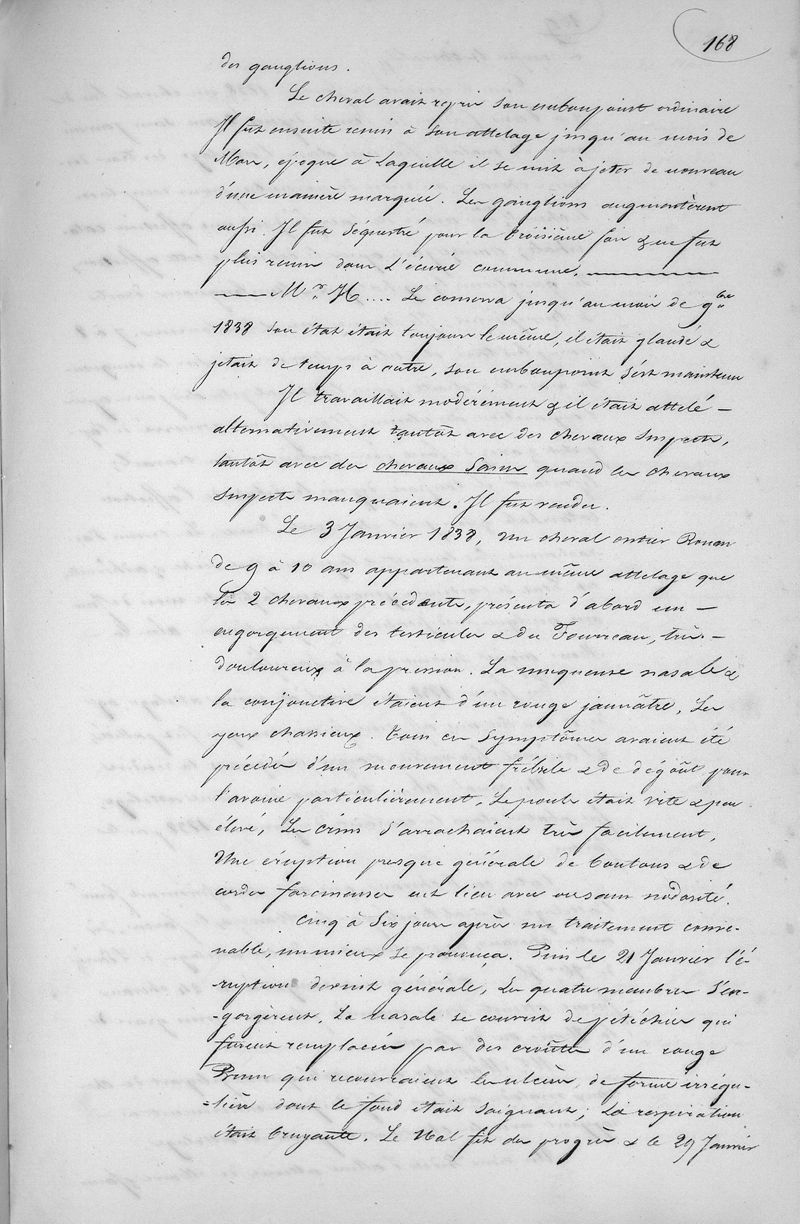 168
des ganglions.
Le cheval avait repris son embonpoint ordinaire
Il fut ensuite remis à son attelage jusqu'au mois de
Mars, époque à laquelle il se mit à jeter de nouveau
d'une manière marquée. Les ganglions augmentèrent
aussi. Il fut séquestré pour la troisième fois & ne fut
plus remis dans l'écurie commune.
Mr. H.... Le conserva jusqu'au mois de 9bre
1838 son état était toujours le même, il était glandé &
jetait de temps à autre, son embonpoint s'est maintenu
Il travaillait modérément & il était attelé –
alternativement tantôt avec des chevaux suspects,
tantôt avec des chevaux Sains quand les chevaux
suspects manquaient. Il fut vendu.
Le 3 Janvier 1838, un cheval entier Rouan
de 9 à 10 ans appartenant au même attelage que
les 2 chevaux précédents, présenta d'abord un –
engorgement des testicules & du Fourreau, très –
douloureux à la pression. La muqueuse nasale &
la conjonctive étaient d'un rouge jaunâtre, Les
yeux chassieux. Tous ces symptômes avaient été
précédés d'un mouvement fébrile & de dégoût pour
l'avoine particulièrement, Le pouls était vite & peu
élevé, Les crins s'arrachaient très facilement,
Une éruption presque générale de boutons & de
cordes farcineuses eut lieu avec ou sans nodosité.
Cinq à Six jours après un traitement conve-
nable, un mieux se prononça. Puis le 21 Janvier l'é-
-ruption devint générale, Les quatre membres s'en-
-gorgèrent, La nasale se couvrit de pétéchies qui
furent remplacées par des croûtes d'un rouge
Brun qui recouvraient les ulcères, de forme irrégu-
-lière dont le fond était saignant; La respiration
était bruyante. Le Mal fit des progrès & le 29 Janvier